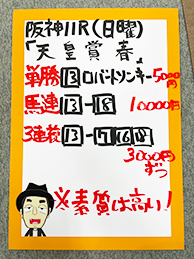 阪神11R(日曜)
「天皇賞春」
単勝13ロバートソンキー5000円
馬連13-18 10000円
3連複13-7 16 18
3000円
ずつ
※素質は高い!